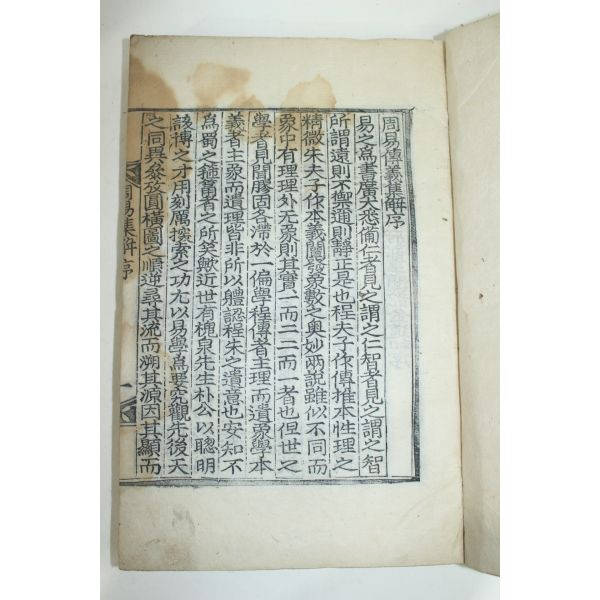 周易傳義集解序
易之爲書廣大悉備仁者見之謂之仁智者見之謂之智
所謂遠則不禦邇則靜正是也程夫子作傳推本性理之
精微朱夫子作本義闡發象數之奧妙兩說雖似不同而
象中有理理外无象則其實一而二二而一者也但世之
學者見聞膠固各滯於一偏學程傳者主理而遺象學本
義者主象而遺理皆非所以體認程朱之遺意也安知不
爲蜀之箍籥者之所笑歟近世有槐泉先生朴公以聰明
該博之才用刻厲探索之功尤以易學爲要究觀先後天
之同異叅攷圓橫圖之順逆尋其流而溯其源因其顯而
周易集解序
一